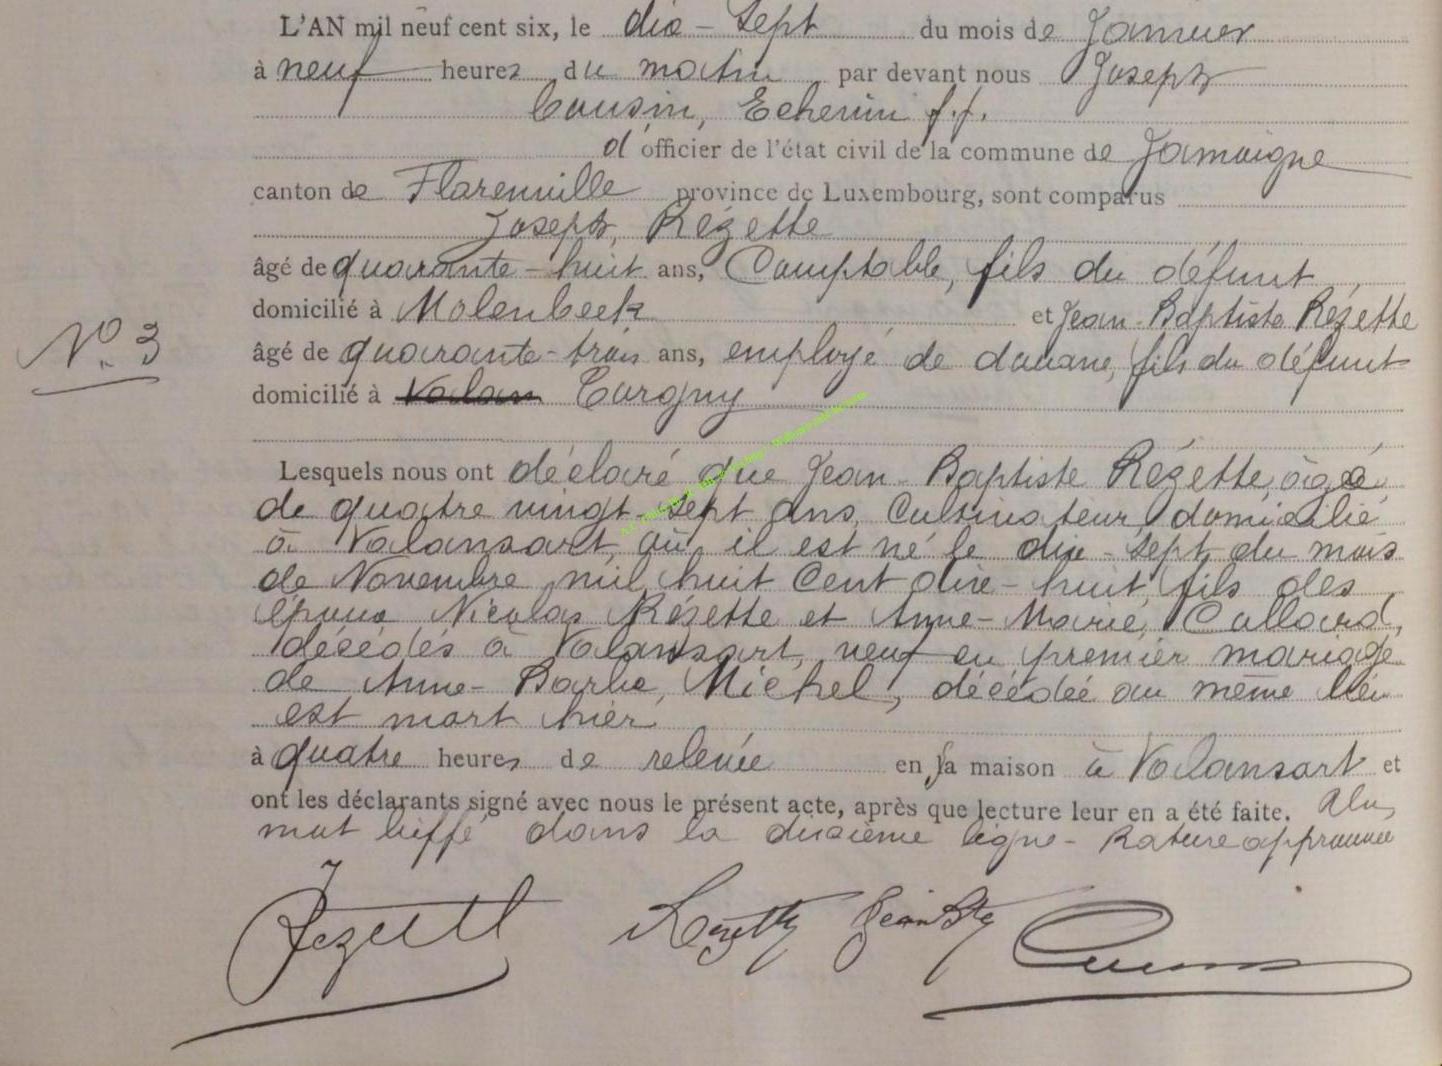 L'AN mil neuf cent six, le dix-sept du mois de Janvier
à neuf heures du matin par devant nous Joseph
Cousin, Echevin f.f.
d'officier de l'état civil de la commune de Jamoigne
canton de Florenville province de Luxembourg, sont comparus
Joseph, Rézette
âgé de quarante-huit ans, Comptable, fils du défunt,
domicilié à Molenbeek et Jean-Baptiste Rézette
Nº 3
âgé de quarante-trois ans, employé de douane, fils du défunt
domicilié à Valan Torgny
Lesquels nous ont déclaré que Jean-Baptiste Rézette, âgé
de quatre vingt-sept ans, Cultivateur, domicilié
à Valansart, où il est né le dix-sept du mois
de Novembre mil huit Cent dix-huit, fils des
époux Nicolas Rézette et Anne-Marie, Collard,
décédés à Valansart, veuf en premier mariage
de Anne-Barbe, Michel, décédée au même lieu
est mort hier
à quatre heures de relevée en sa maison à Valansart et
ont les déclarants signé avec nous le présent acte, après que lecture leur en a été faite.
mot biffé dans la dixième ligne - Rature approuvée
JRezette Rezette Jean Bte Cousin